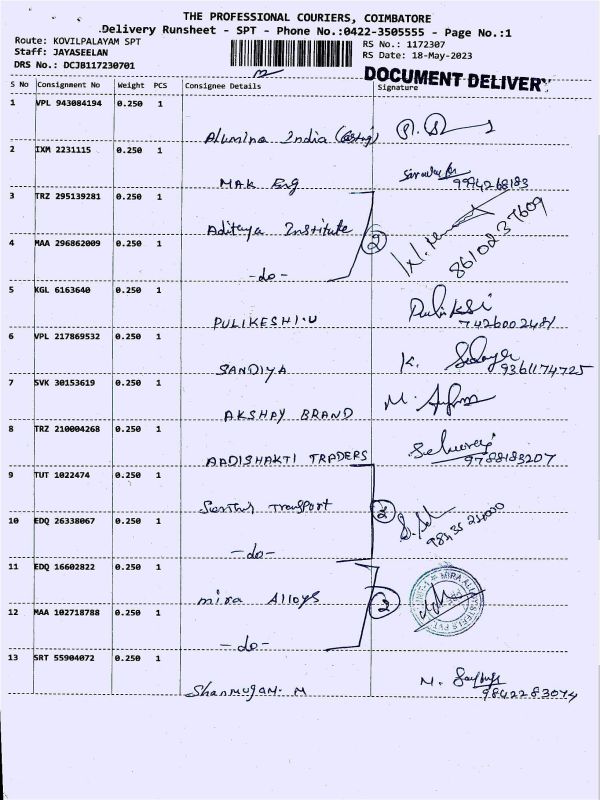 THE PROFESSIONAL COURIERS, COIMBATORE
Delivery Runsheet - SPT - Phone No.:0422-3505555 - Page No.:1
Route: KOVILPALAYAM SPT
RS No.: 1172307
Staff: JAYASEELAN
RS Date: 18-May-2023
DRS No.: DCJB117230701
DOCUMENT DELIVERY
S No Consignment No Weight PCS Consignee Details Signature
1 VPL 943084194 0.250 1
Alumina India
2 IXM 2231115 0.250 1
MAK Eng 9994268183
3 TRZ 295139281 0.250 1
Aditaya Institute
8610237609
4 MAA 296862009 0.250 1
-do-
2
5 KGL 6163640 0.250 1
PULIKESHI.U Pulikesi
7426002481
6 VPL 217869532 0.250 1
SANDIYA K.
9361174725
7 SVK 30153619 0.250 1
AKSHAY BRAND M.
8 TRZ 210004268 0.250 1
AADISHAKTI TRADERS Selvaraj
9788183207
9 TUT 1022474 0.250 1
Transport
2
10 EDQ 26338067 0.250 1
-do-
11 EDQ 16602822 0.250 1
mira Alloys
2
MIRA ALLOY
12 MAA 102718788 0.250 1
-do-
13 SRT 55904072 0.250 1
Shanmugam. M M.
9842283074